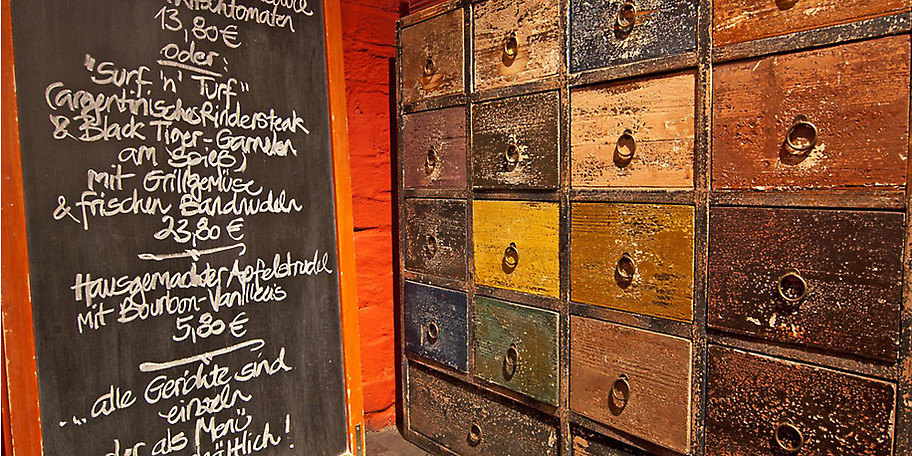 13,80 €
oder:
"Surf 'n' Turf"
(argentinisches Rindersteak
& Black Tiger-Garnelen
am Spieß)
mit Grillgemüse
& frischen Bandnudeln
23,80 €
Hausgemachter Apfelstrudel
mit Bourbon-Vanilleeis
5,80 €
... alle Gerichte sind
einzeln
der als Menü